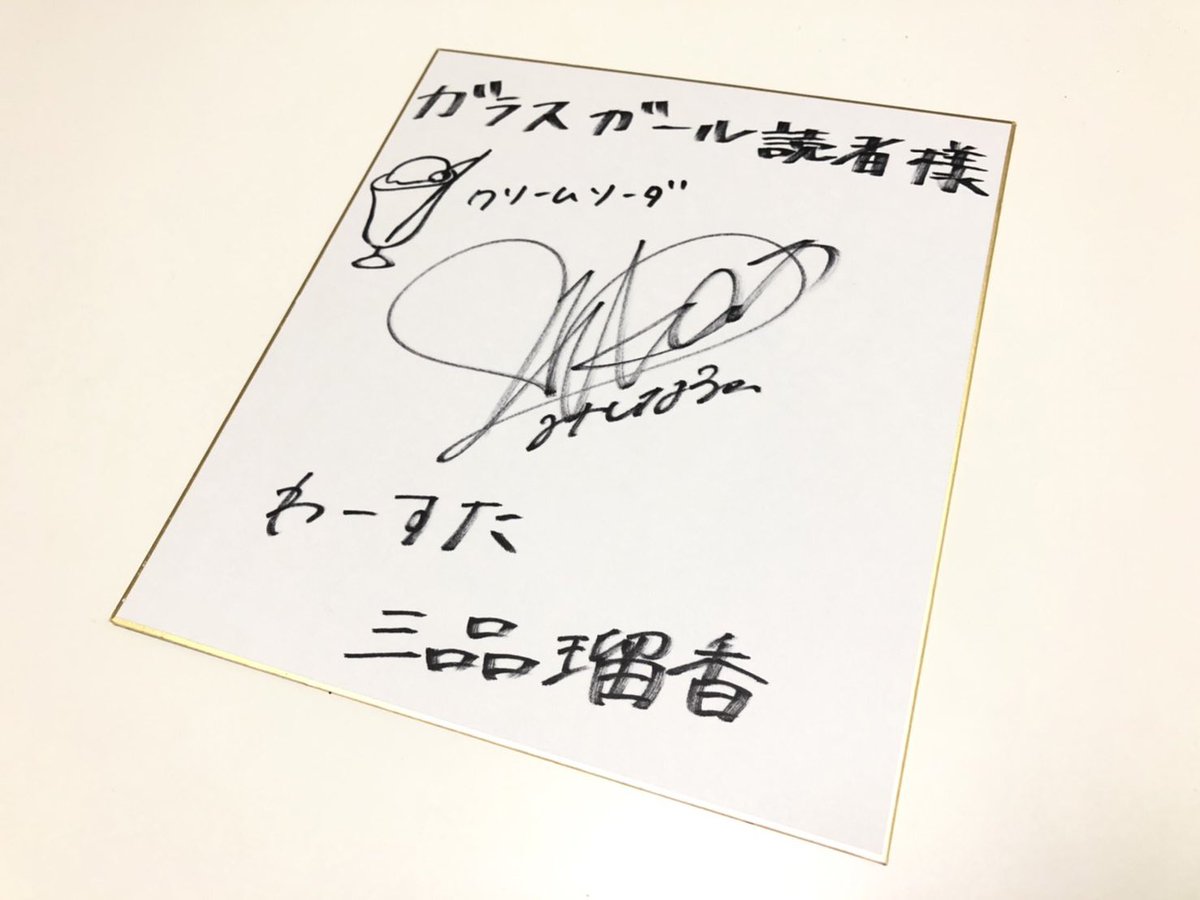 ガラスガール読者様
クリームソーダ
みしなるか
わーすた
三品瑠香